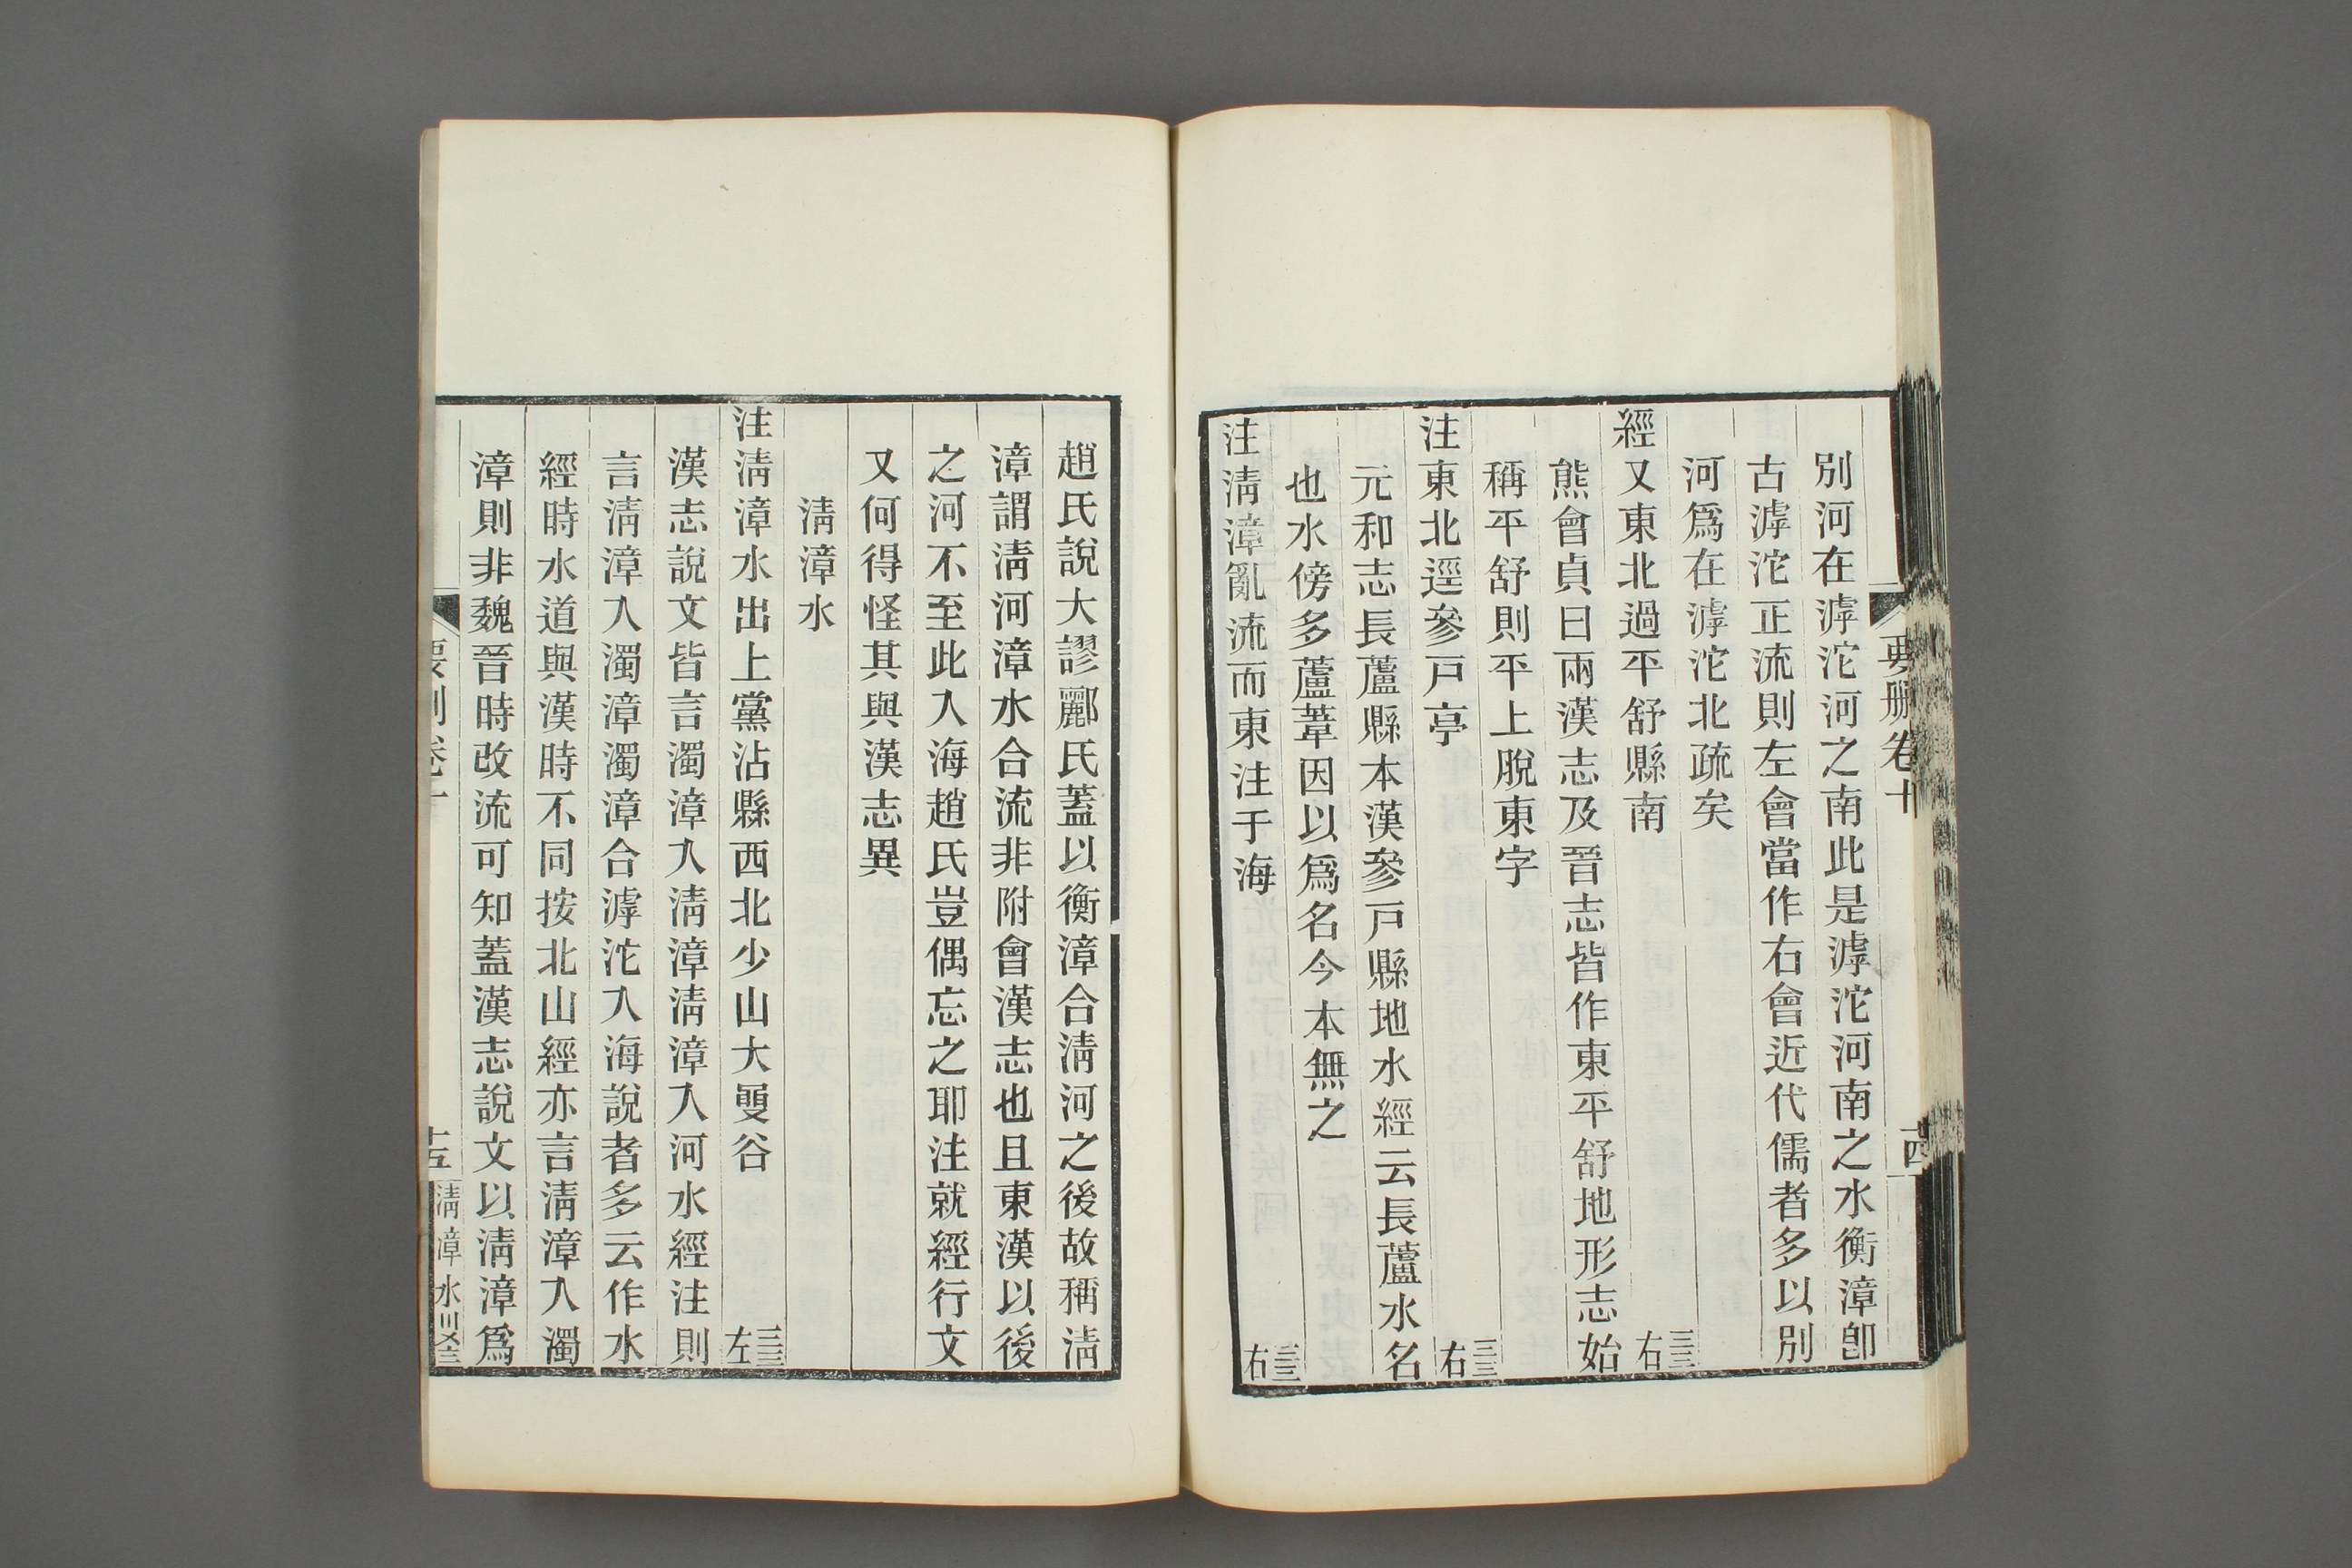 要刪卷十
十四
別河在滹沱河之南此是滹沱河南之水衡漳卽
古滹沱正流則左會當作右會近代儒者多以別
河爲在滹沱北疏矣
經又東北過平舒縣南
三三右
熊會貞曰兩漢志及晉志皆作東平舒地形志始
稱平舒則平上脫東字
注東北逕參戸亭
三三右
元和志長蘆縣本漢參戸縣地水經云長蘆水名
也水傍多蘆葦因以爲名今本無之
注淸漳亂流而東注于海
三三右
趙氏說大謬酈氏蓋以衡漳合淸河之後故稱淸
漳謂淸河漳水合流非附會漢志也且東漢以後
之河不至此入海趙氏豈偶忘之耶注就經行文
又何得怪其與漢志異
淸漳水
注淸漳水出上黨沾縣西北少山大㕠谷
三三左
漢志說文皆言濁漳入淸漳淸漳入河水經注則
言淸漳入濁漳濁漳合滹沱入海說者多云作水
經時水道與漢時不同按北山經亦言淸漳入濁
漳則非魏晉時改流可知蓋漢志說文以淸漳爲
要刪卷十
十五
淸漳水